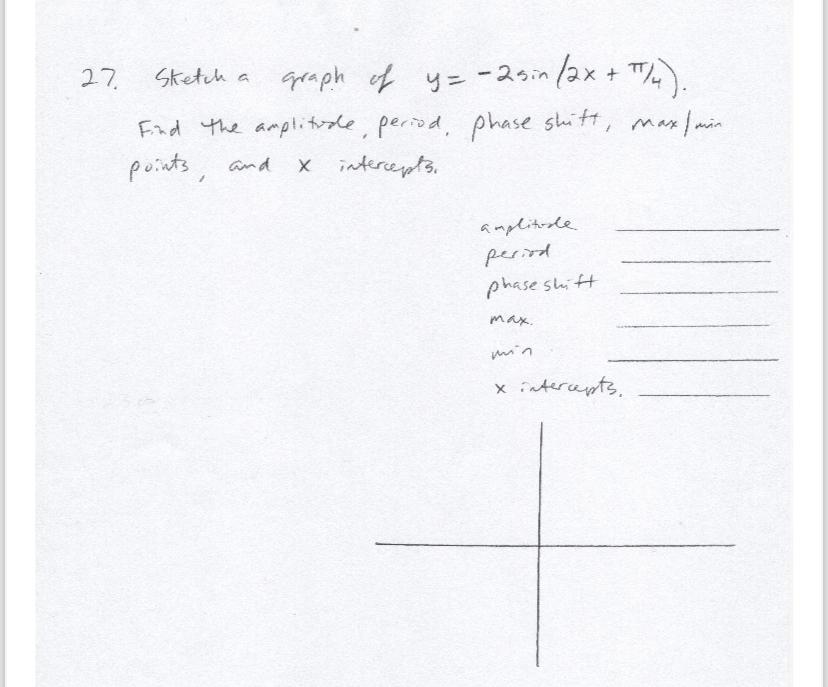 27. Sketch a graph of y = -2 sin (2x + π/4).
Find the amplitude, period, phase shift, max/min
points, and x intercepts.
amplitude
period
phase shift
max.
min
x intercepts.